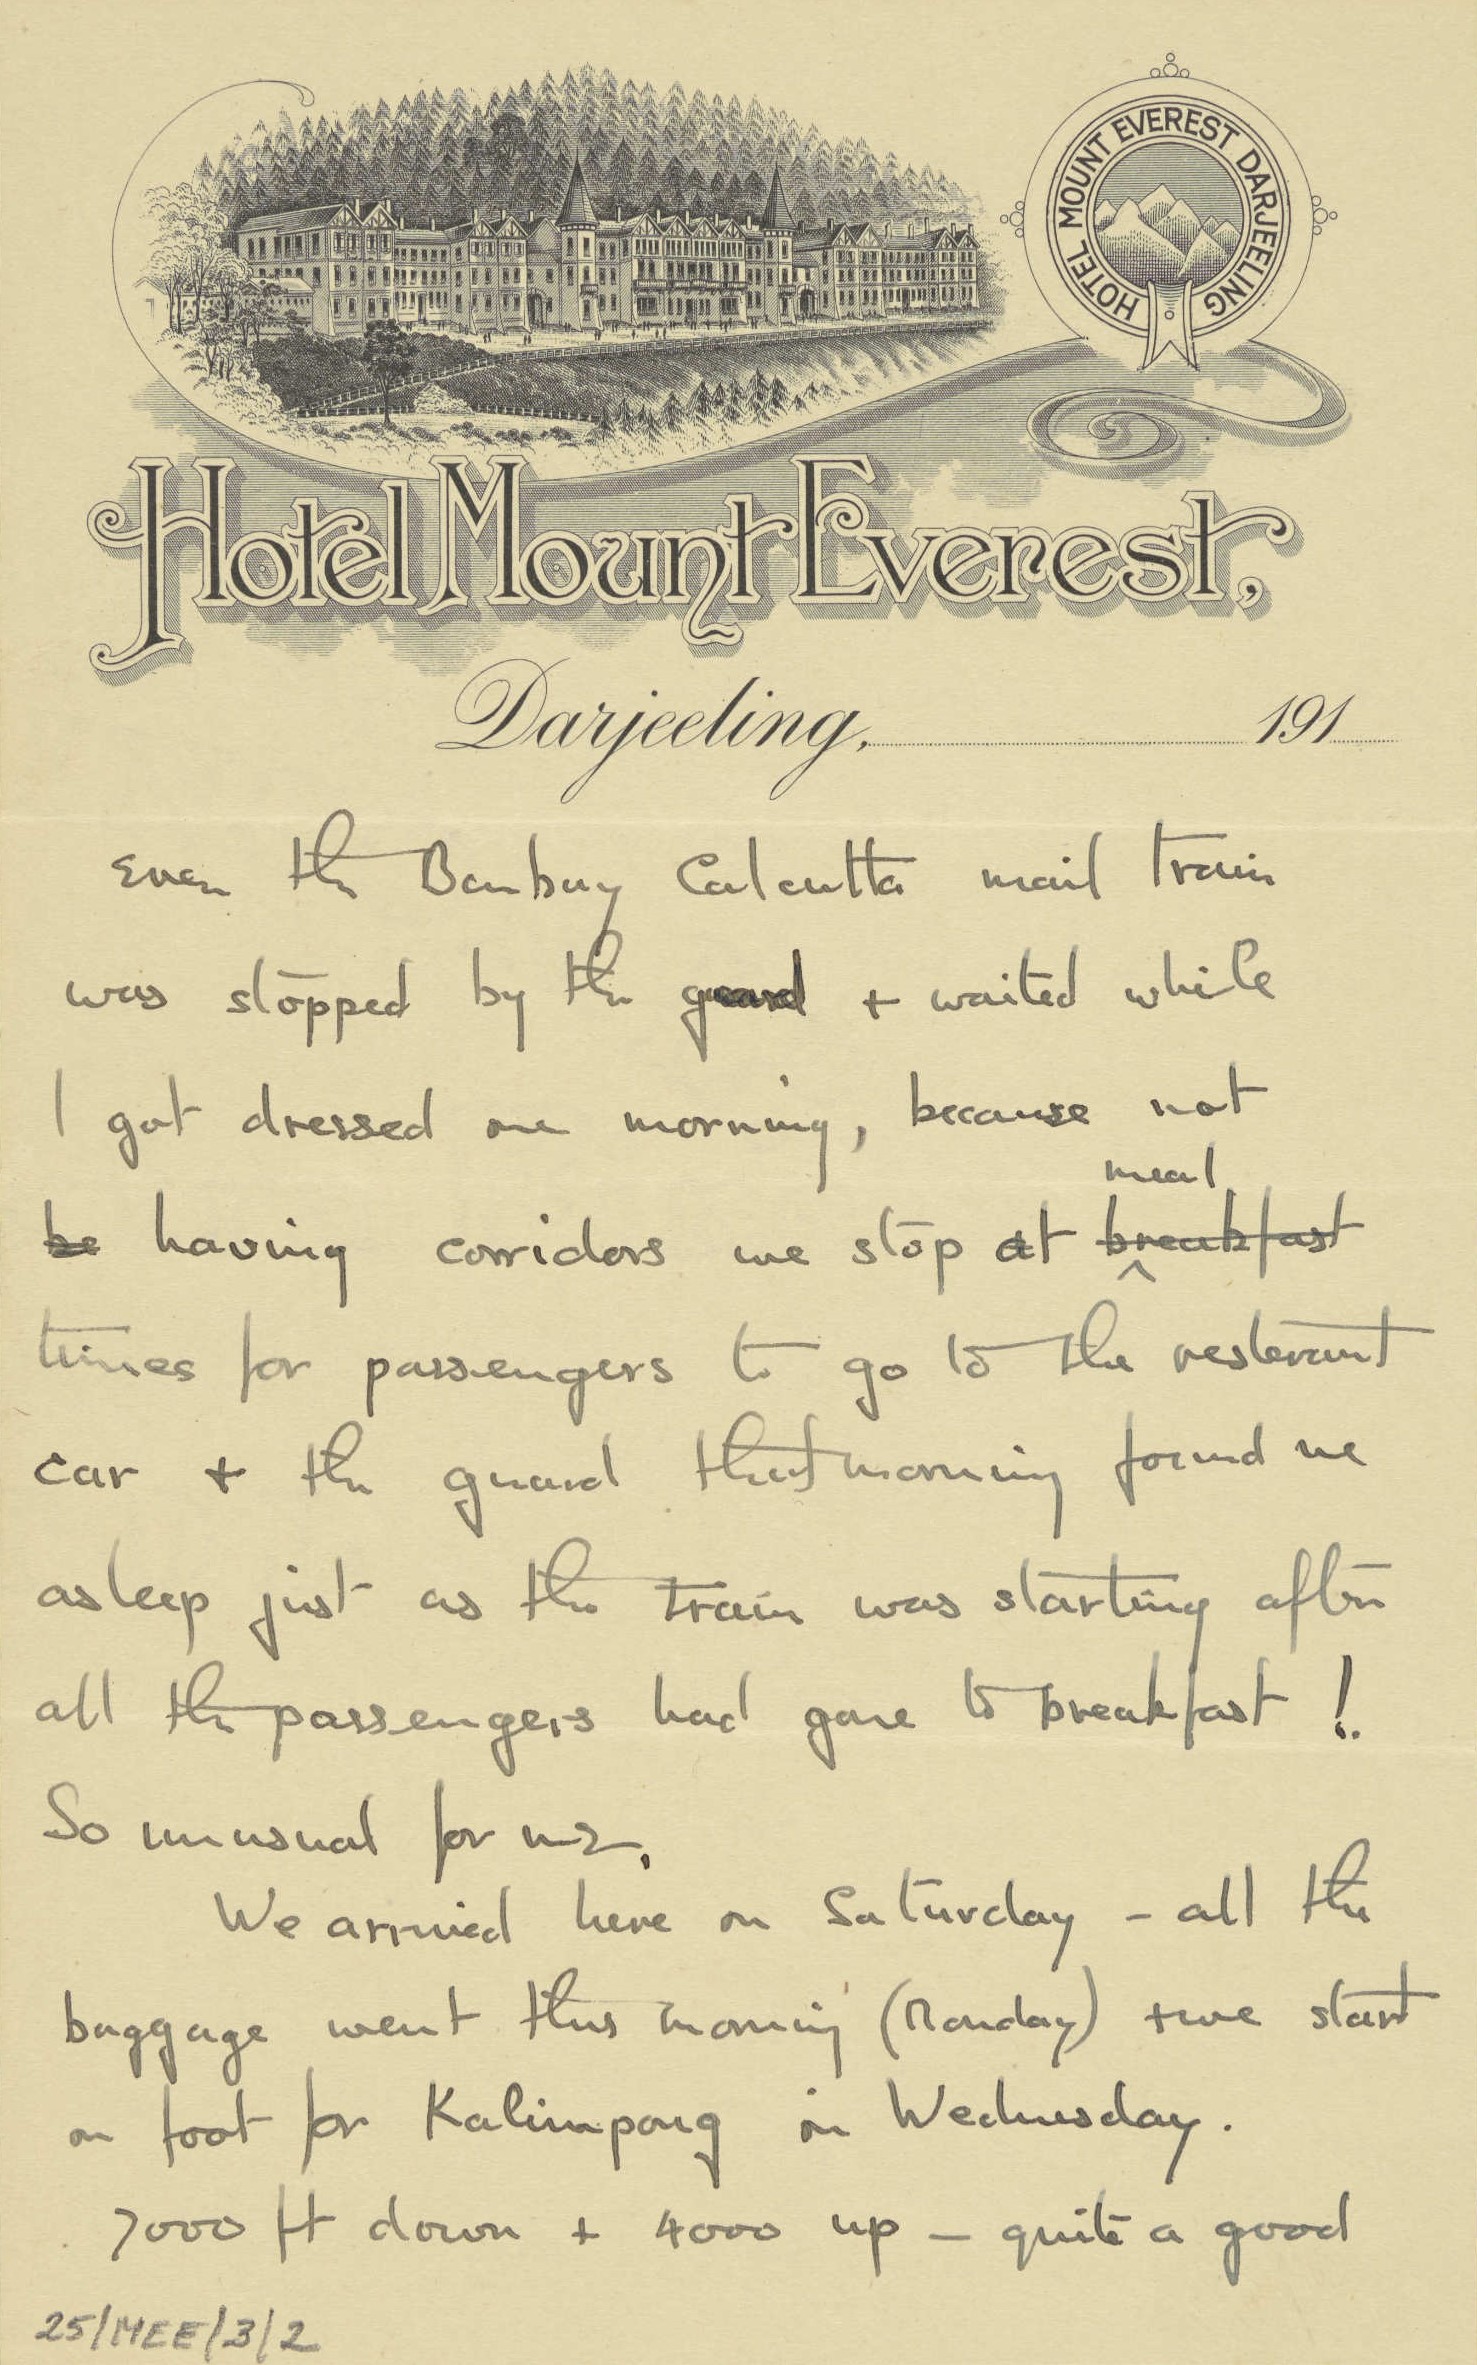 HOTEL MOUNT EVEREST DARJEELING
Hotel Mount Everest,
Darjeeling, 191
Even the Bombay Calcutta mail train
was stopped by the guard + waited while
I got dressed one morning, because not
be having corridors we stop at breakfast
meal
times for passengers to go to the resteraunt
car + the guard that morning found me
asleep just as the train was starting after
all the passengers had gone to breakfast!
So unusual for me.
We arrived here on Saturday - all the
baggage went this morning (Monday) + we start
on foot for Kalimpong on Wednesday.
7000 ft down + 4000 up - quite a good
25/MEE/3/2